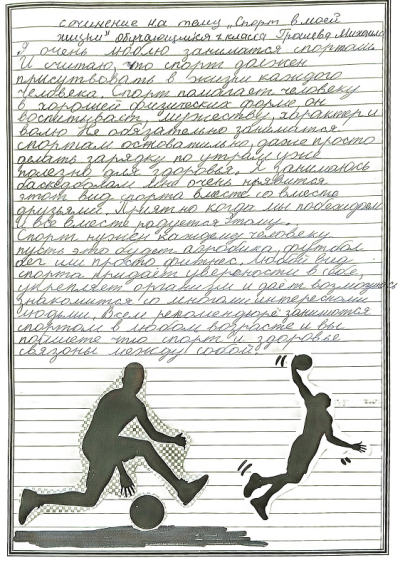 сочинение на тему „Спорт в моей
жизни" обучающийся 2 класса Михаила
Я очень люблю заниматся спортом.
И считаю, что спорт должен
присутвовать в жизни каждого
человека. Спорт помагает человеку
в хорошей физических форме, он
воспитывает, мужеству, характер и
волю Не обязательно заниматся
спортом остоватильно, даже просто
делать зарядку по утрам уже
полезно для здоровья. Я занимаюсь
баскедболам мне очень нравится
этот вид спорта вместе со вместе
друзьями. Приятно когда мы побеждаем
и все вместе радуется этому.
Спорт нужен каждему человеку
пусть это будет аэробика, футбол
бег или просто фитнес. Любой вид
спорта придаёт увереность в себе,
укрепляет организм и даёт возможность
знакомится со многоми интересными
людьми. Всем рекомендюрё заниматся
спортом в любом возрасте и вы
поймете что спорт и здоровье
связоны между собой.